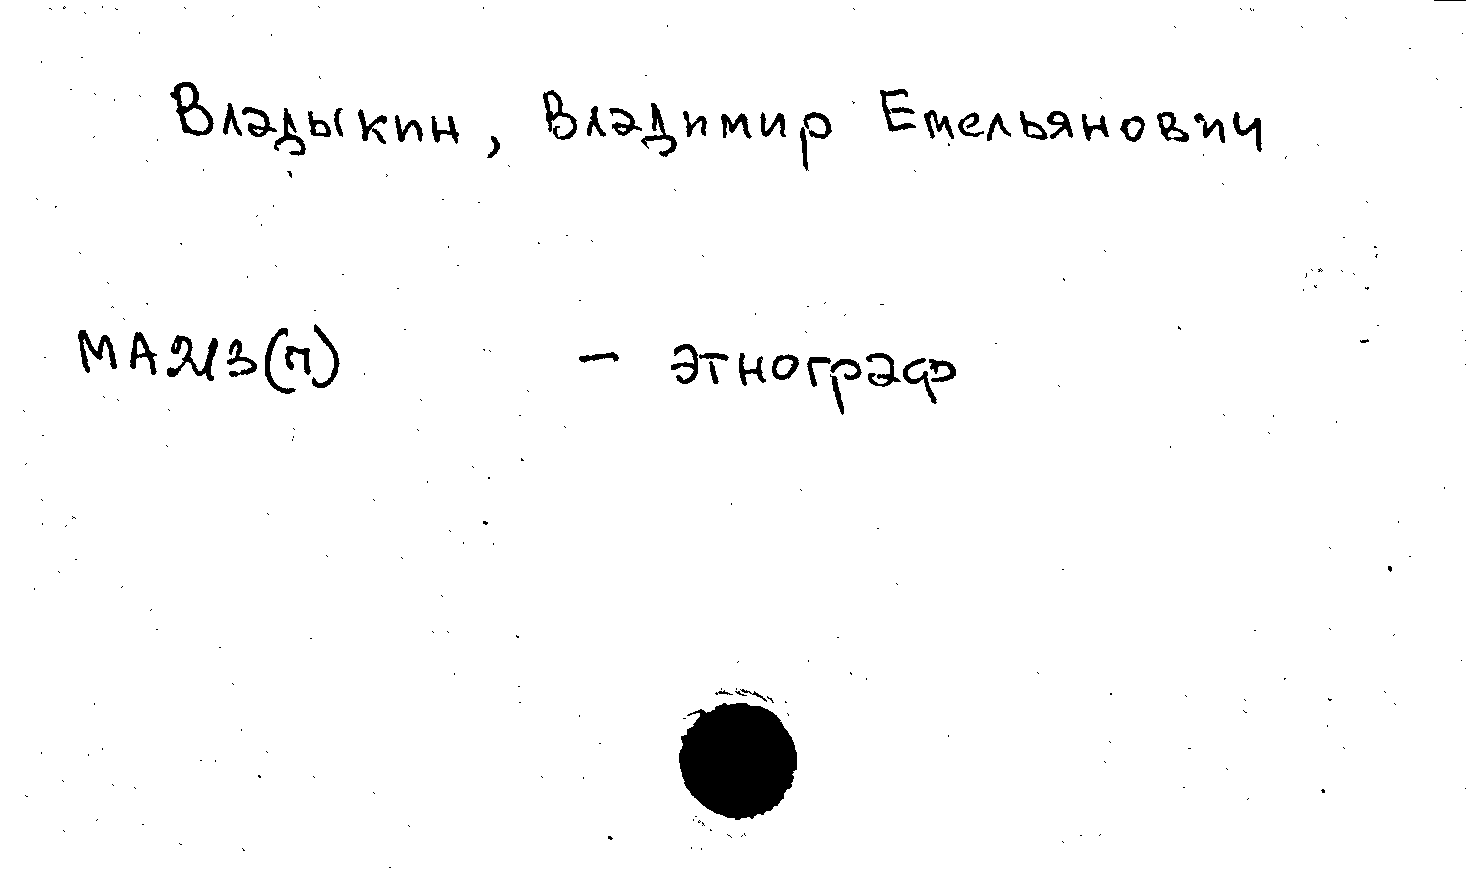 Владыкин, Владимир Емельянович
МА213(п) - этнограф